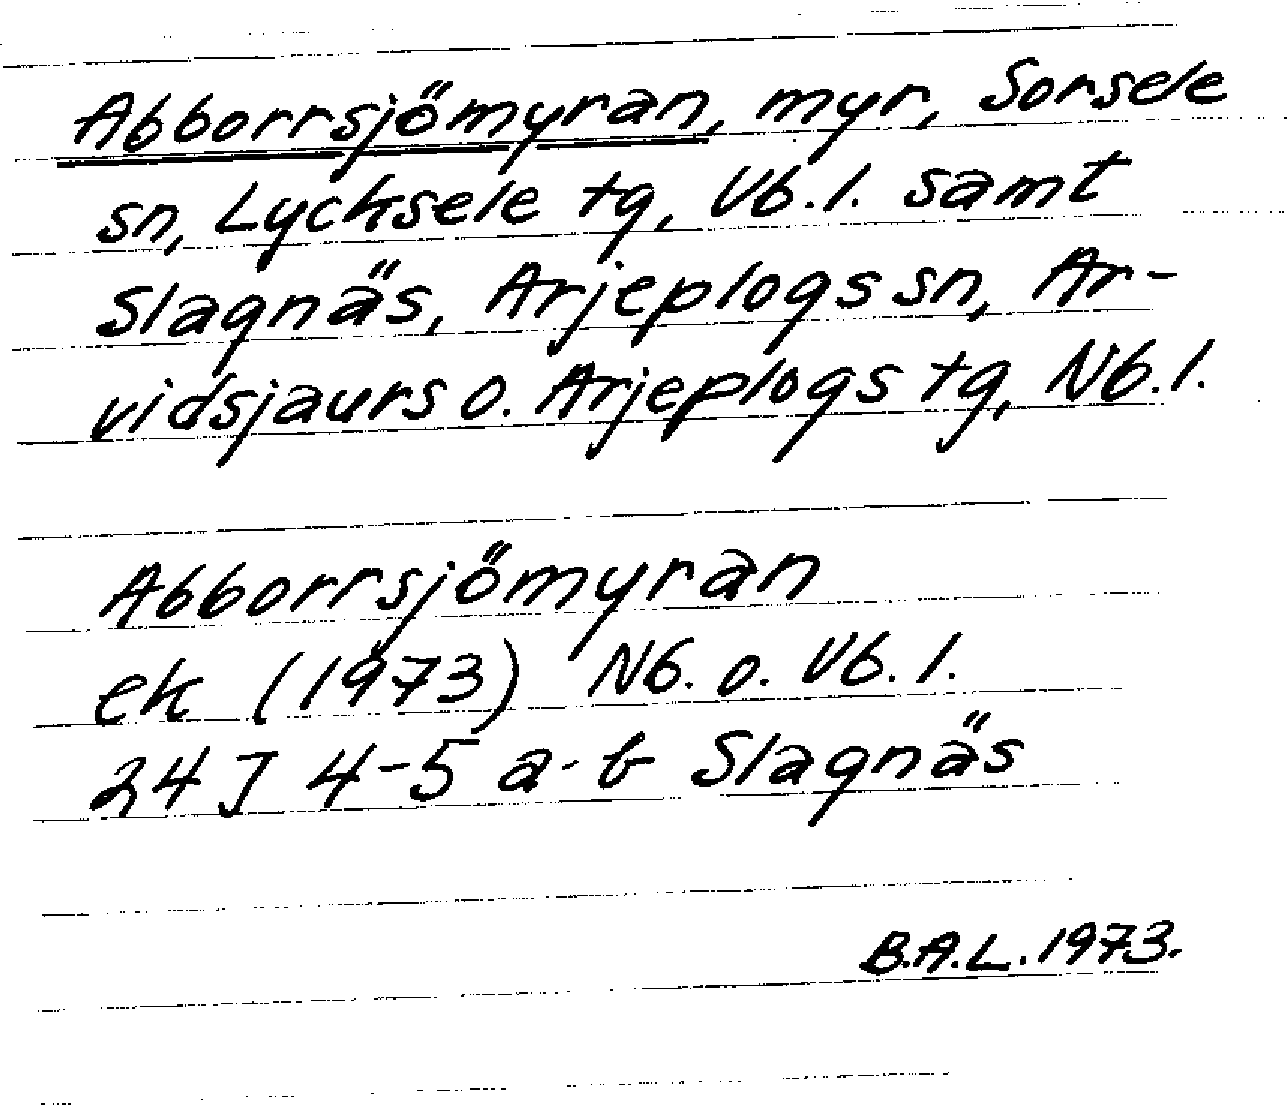 Abborrsjömyran, myr, Sorsele
sn, Lycksele tg, Vb.l. samt
Slagnäs, Arjeplogs sn, Ar-
vidsjaurs o. Arjeplogs tg, Nb.l.
Abborrsjömyran
ek (1973) Nb. o. Vb. l.
24J 4-5 a-b Slagnäs
B.A.L. 1973.